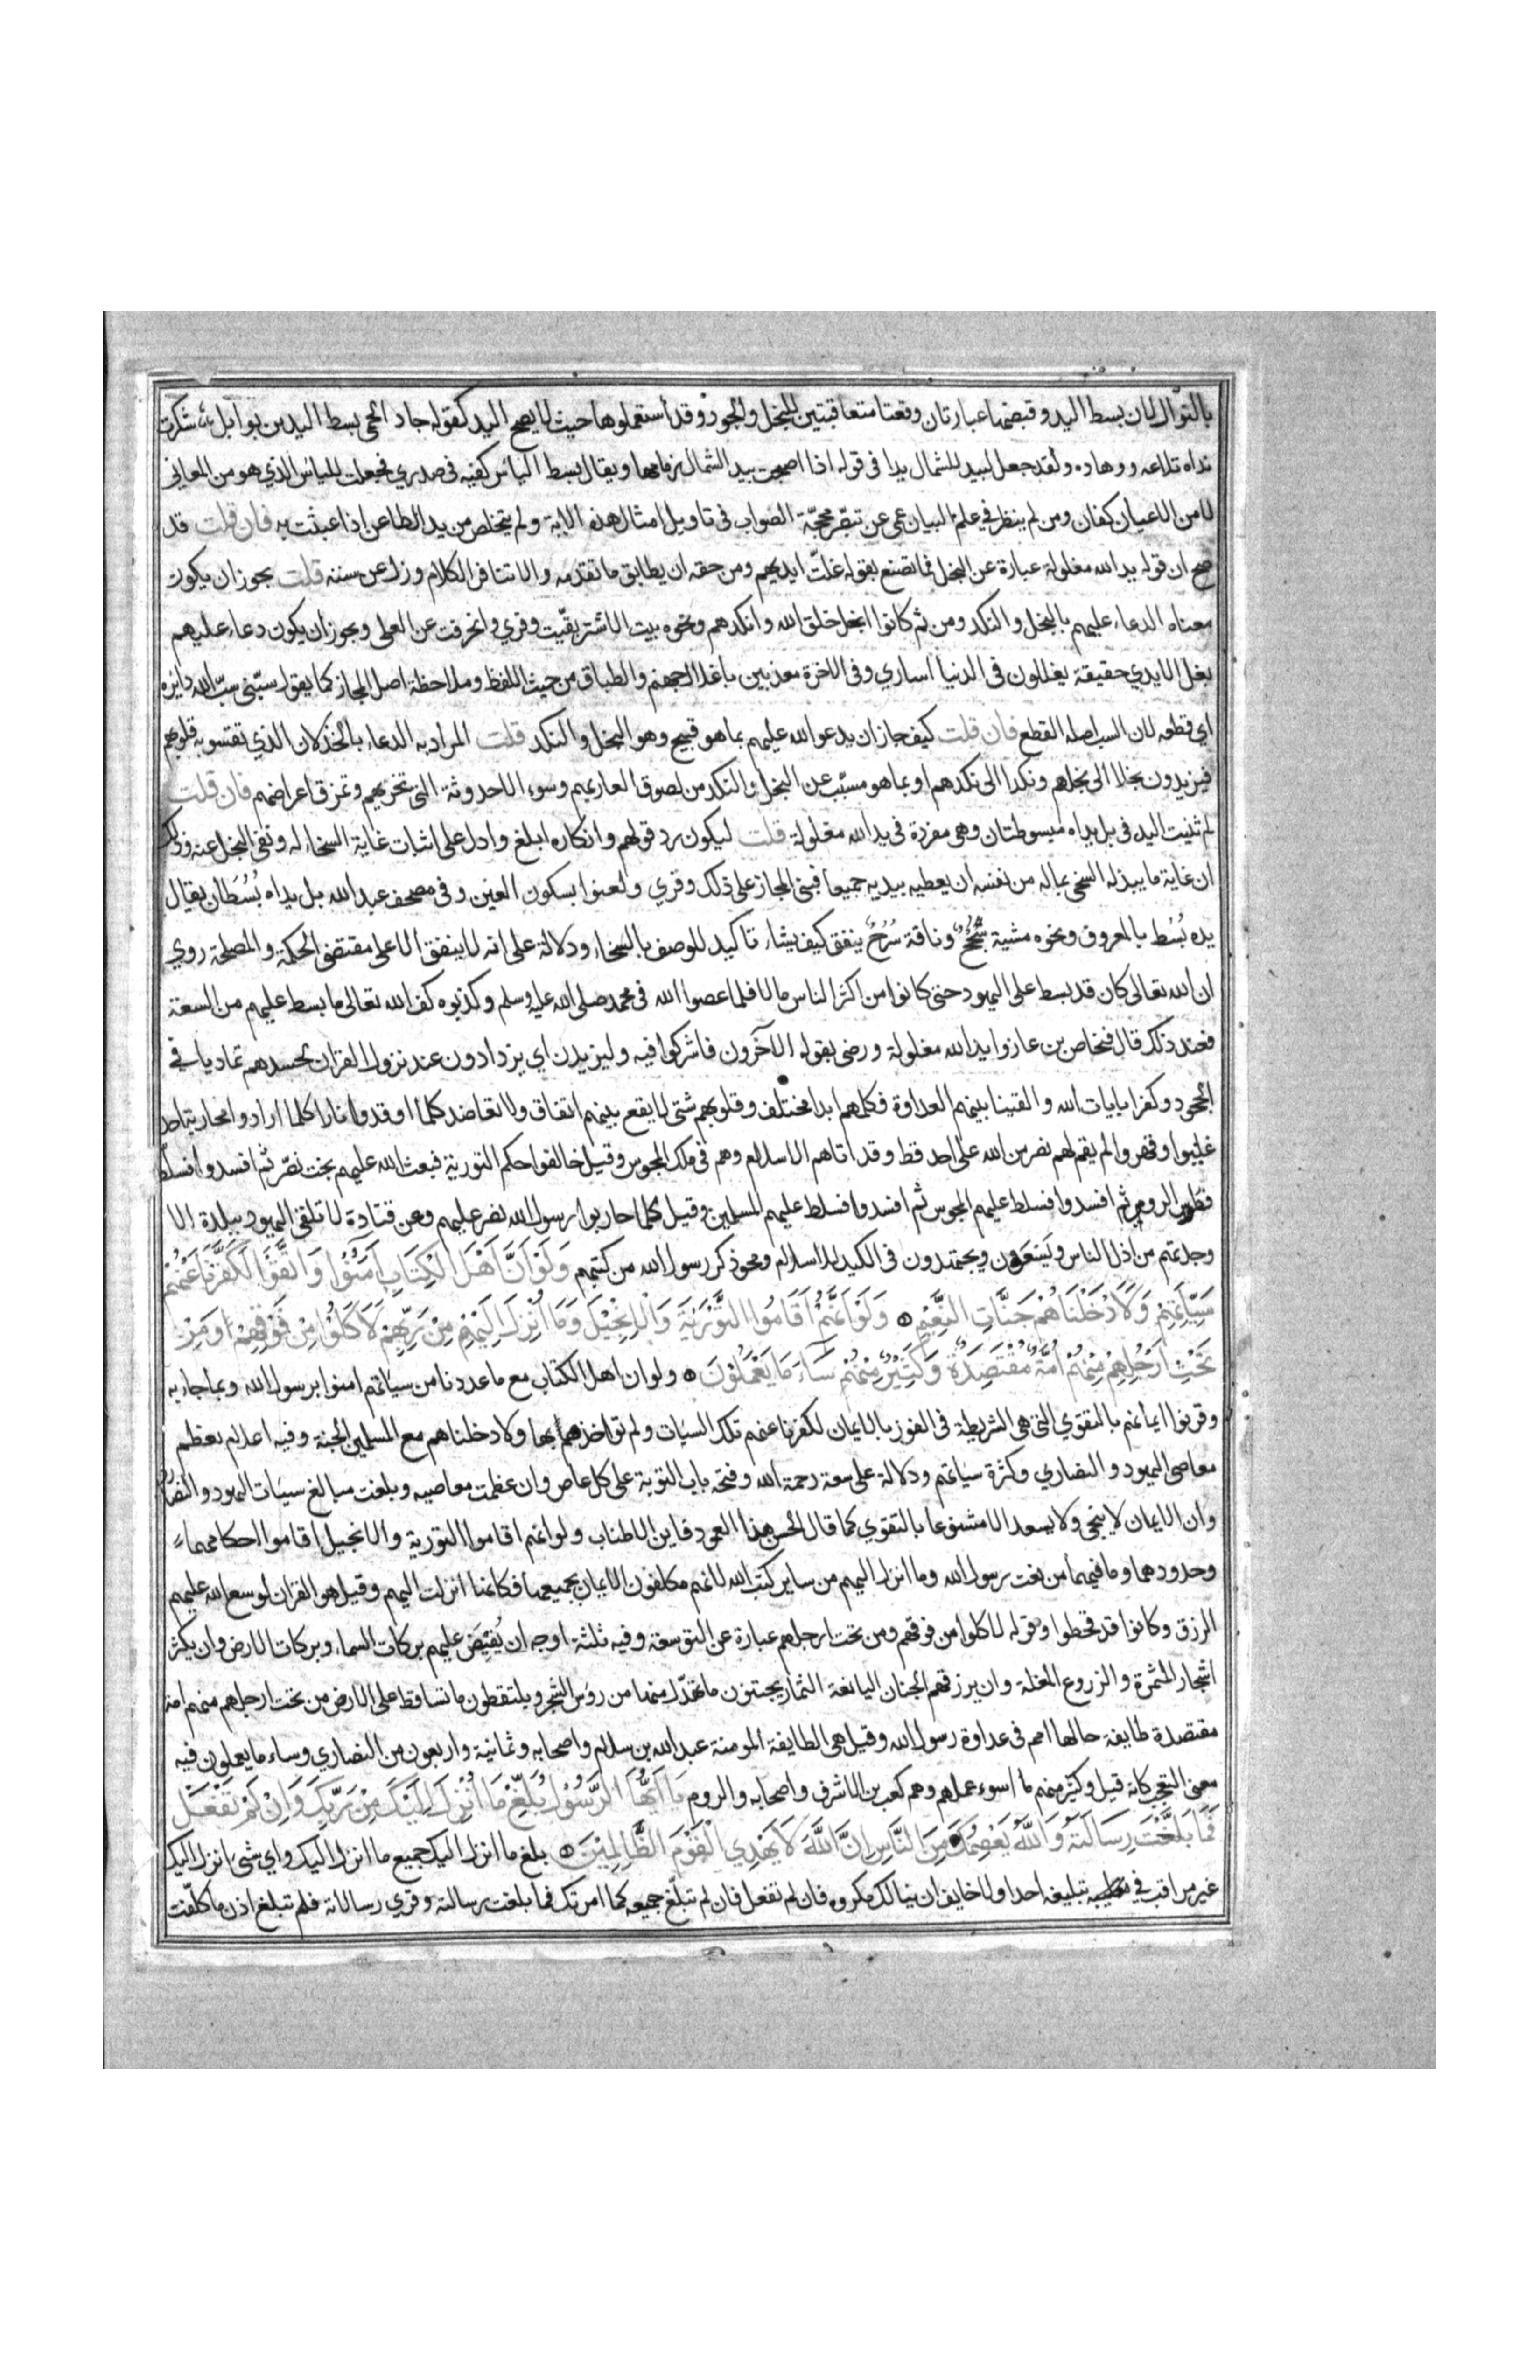 بالنوال لان بسط اليد وقبضها عبارتان وقعتا متعاقبتين للبخل والجود وقد استعملوها حيث لا يصح اليد كقوله جاد الحمى بسط اليدين بوابل شكرت
نداه تلاعه ووهاده ولقد جعل لبيد للشمال يدا في قوله اذا اصبحت بيد الشمال زمامها ويقال بسط الياس كفيه في صدري فجعلت للياس الذي هو من المعاني
لا من الاعيان كفان ومن لم ينظر في علم البيان عمى عن تبصّر محجّة الصواب في تاويل امثال هذه الاية ولم يتخلص من يد الطاعن اذا عبثت به فان قلت قد
صح ان قوله يد الله مغلولة عبارة عن البخل فما تصنع بقوله غلّت ايديهم ومن حقه ان يطابق ما تقدمه والا تنافر الكلام وزل عن سننه قلت يجوز ان يكون
معناه الدعاء عليهم بالبخل والنكد ومن ثم كانوا ابخل خلق الله وانكدهم ونحوه بيت الاشتر بقّيت وفري وانحرفت عن العلى ويجوز ان يكون دعاء عليهم
بغل الايدي حقيقة يغللون في الدنيا اساري وفي الاخرة معذبين باغلال جهنم والطباق من حيث اللفظ وملاحظة اصل المجاز كما يقول سبّني سبّ الله دابره
اي قطعه لان السب اصله القطع فان قلت كيف جاز ان يدعو الله عليهم بما هو قبيح وهو البخل والنكد قلت المراد به الدعاء بالخذلان الذي تقسو به قلوبهم
فيزيدون بخلا الى بخلهم ونكدا الى نكدهم او بما هو مسبّب عن البخل والنكد من لصوق العار بهم وسوء الاحدوثة التي تخزيهم وتمزق اعراضهم فان قلت
لم ثنيت اليد في بل يداه مبسوطتان وهي مفردة في يد الله مغلولة قلت ليكون رد قولهم وانكاره ابلغ وادل على اثبات غاية السخاء له ونفي البخل عنه وذلك
ان غاية ما يبذله السخي بماله من نفسه ان يعطيه بيديه جميعا فبنى المجاز على ذلك وقري ولعنوا بسكون العين وفي مصحف عبد الله بل يداه بُسُطَان يقال
يده بُسُط بالمعروف ونحوه مشية سُجُحٌ وناقة سُرُحٌ ينفق كيف يشاء تاكيد للوصف بالسخاء ودلالة على انه لا ينفق الا على مقتضى الحكمة والمصلحة روي
ان الله تعالى كان قد بسط على اليهود حتى كانوا من اكثر الناس مالا فلما عصوا الله في محمد صلى الله عليه وسلم وكذبوه كف الله تعالى ما بسط عليهم من السعة
فعند ذلك قال فنحاص بن عازوا يد الله مغلولة ورضى بقوله الآخرون فاشركوا فيه وليزيدن اي يزدادون عند نزول القران لحسدهم تماديا في
الجحود وكفرا بايات الله والقينا بينهم العداوة فكلهم ابدا مختلف وقلوبهم شتى لا يقع بينهم اتفاق ولا تعاضد كلما اوقدوا نارا كلما ارادوا محاربة احد
غلبوا وقهروا لم يقم لهم نصر من الله على احد قط وقد اتاهم الاسلام وهم في ملك المجوس وقيل خالفوا حكم التورية فبعث الله عليهم بخت نصّر ثم افسدوا فسلّط
الرومي ثم افسدوا فسلط عليهم المجوس ثم افسدوا فسلط عليهم المسلمين وقيل كلما حاربوا رسول الله نصر عليهم وعن قتادة لا تلقى اليهود ببلدة الا
وجدتهم من اذل الناس ويَسْعَوْن ويجتهدون في الكيد للاسلام ومحو ذكر رسول الله من كتبهم وَلَوْ اَنَّ اَهْلَ الْكِتَابِ اٰمَنُوْا وَاتَّقَوْا لَكَفَّرْنَا عَنْهُمْ
سَيِّاٰتِهِمْ وَلَاَدْخَلْنَاهُمْ جَنَّاتِ النَّعِيْمِ وَلَوْ اَنَّهُمْ اَقَامُوا التَّوْرٰيةَ وَالْاِنْجِيْلَ وَمَا اُنْزِلَ اِلَيْهِمْ مِنْ رَبِّهِمْ لَاَكَلُوْا مِنْ فَوْقِهِمْ وَمِنْ
تَحْتِ اَرْجُلِهِمْ مِنْهُمْ اُمَّةٌ مُقْتَصِدَةٌ وَكَثِيْرٌ مِنْهُمْ سَآءَ مَا يَعْمَلُوْنَ ولو ان اهل الكتاب مع ما عددنا من سياتهم امنوا برسول الله وبما جاء به
وقرنوا ايمانهم بالتقوي التي هي الشريطة في الفوز بالايمان لكفرنا عنهم تلك السيات ولم نواخذهم بها ولادخلناهم مع المسلمين الجنة وفيه اعلام بعظم
معاصي اليهود والنصاري وكثرة سياتهم ودلالة على سعة رحمة الله وفتحه باب التوبة على كل عاص وان عظمت معاصيه وبلغت مبالغ سيئات اليهود والنصاري
وان الايمان لا ينجي ولا يسعد الا مشفوعا بالتقوي كما قال الحسن هذا العمود فاين الاطناب ولو انهم اقاموا التورية والانجيل اقاموا احكامهما
وحدودهما وما فيهما من نعت رسول الله وما انزل اليهم من ساير كتب الله لانهم مكلفون الايمان بجميعها فكانها انزلت اليهم وقيل هو القران لوسع الله عليهم
الرزق وكانوا قد قحطوا وقوله لاكلوا من فوقهم ومن تحت ارجلهم عبارة عن التوسعة وفيه ثلثة اوجه ان يُفيض عليهم بركات السماء وبركات الارض وان يكثر
اشجار المثمرة والزروع المغلة وان يرزقهم الجنان اليانعة الثمار يجتنون ما تهدّل منها من رؤس الشجر ويلتقطون ما تساقط على الارض من تحت ارجلهم منهم امة
مقتصدة طايفة حالها امم في عداوة رسول الله وقيل هي الطايفة المومنة عبد الله بن سلام واصحابه وثمانية واربعون من النصاري وساء ما يعملون فيه
معنى التعجب كانه قيل وكثير منهم ما اسوء عملهم وهم كعب بن الاشرف واصحابه والروم يَا اَيُّهَا الرَّسُوْلُ بَلِّغْ مَا اُنْزِلَ اِلَيْكَ مِنْ رَبِّكَ وَاِنْ لَمْ تَفْعَلْ
فَمَا بَلَّغْتَ رِسَالَتَهُ وَاللّٰهُ يَعْصِمُكَ مِنَ النَّاسِ اِنَّ اللّٰهَ لَا يَهْدِي الْقَوْمَ الظَّالِمِيْنَ بلغ ما انزل اليك جميع ما انزل اليك واي شئ انزل اليك
غير مراقب في تبليغه احدا ولا خايف ان ينالك مكروه فان لم تفعل فان لم تبلّغ جميعه كما امرتك فما بلغت رسالته وقري رسالاته فلم تبلغ اذن ما كلّفت